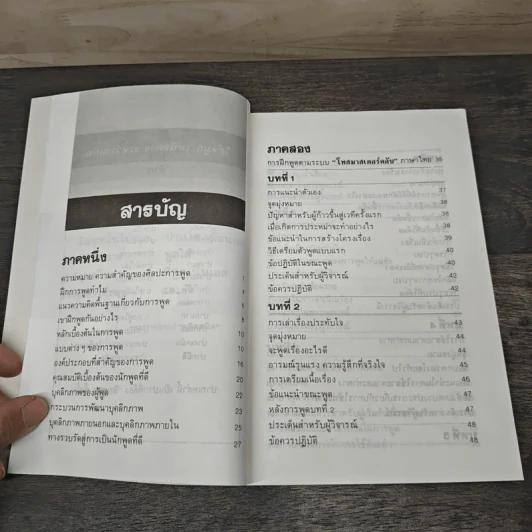 สารบัญ
ภาคหนึ่ง
ความหมาย ความสำคัญของศิลปะการพูด
ฝึกการพูดทำไม
แนวความคิดพื้นฐานเกี่ยวกับการพูด
เขาฝึกพูดกันอย่างไร
หลักเบื้องต้นในการพูด
แบบต่าง ๆ ของการพูด 10
องค์ประกอบที่สำคัญของการพูด 16
คุณสมบัติเบื้องต้นของนักพูดที่ดี 20
บุคลิกภาพของผู้พูด 22
กระบวนการพัฒนาบุคลิกภาพ 23
บุคลิกภาพภายนอกและบุคลิกภาพภายใน 25
ทางรวบรัดสู่การเป็นนักพูดที่ดี 27
ภาคสอง
การฝึกพูดตามระบบ "โทสมาสเตอร์คลับ" ภาษาไทย 36
บทที่ 1
การแนะนำตัวเอง 37
จุดมุ่งหมาย 38
ปัญหาสำหรับผู้ก้าวขึ้นสู่เวทีครั้งแรก 38
เมื่อเกิดการประหม่าจะทำอย่างไร 38
ข้อแนะนำในการสร้างโครงเรื่อง 39
วิธีเตรียมตัวพูดแบบแรก 40
ข้อปฏิบัติในขณะพูด 40
ประเด็นสำหรับผู้วิจารณ์ 42
ข้อควรปฏิบัติ 42
บทที่ 2
การเล่าเรื่องประทับใจ 43
จุดมุ่งหมาย 44
จะพูดเรื่องอะไรดี 44
อารมณ์รุนแรง ความรู้สึกที่จริงใจ 45
การเตรียมเนื้อเรื่อง 46
ข้อแนะนำขณะพูด 47
หลังการพูดบทที่ 2 47
ประเด็นสำหรับผู้วิจารณ์ 48
ข้อควรปฏิบัติ 48